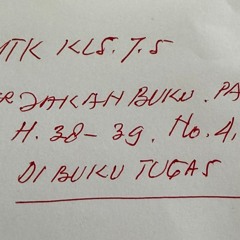 MTK KLS. 7.5
ERJAKAN BUKU. PA
H. 38-39. No. 4,
DI BUKU TUGAS